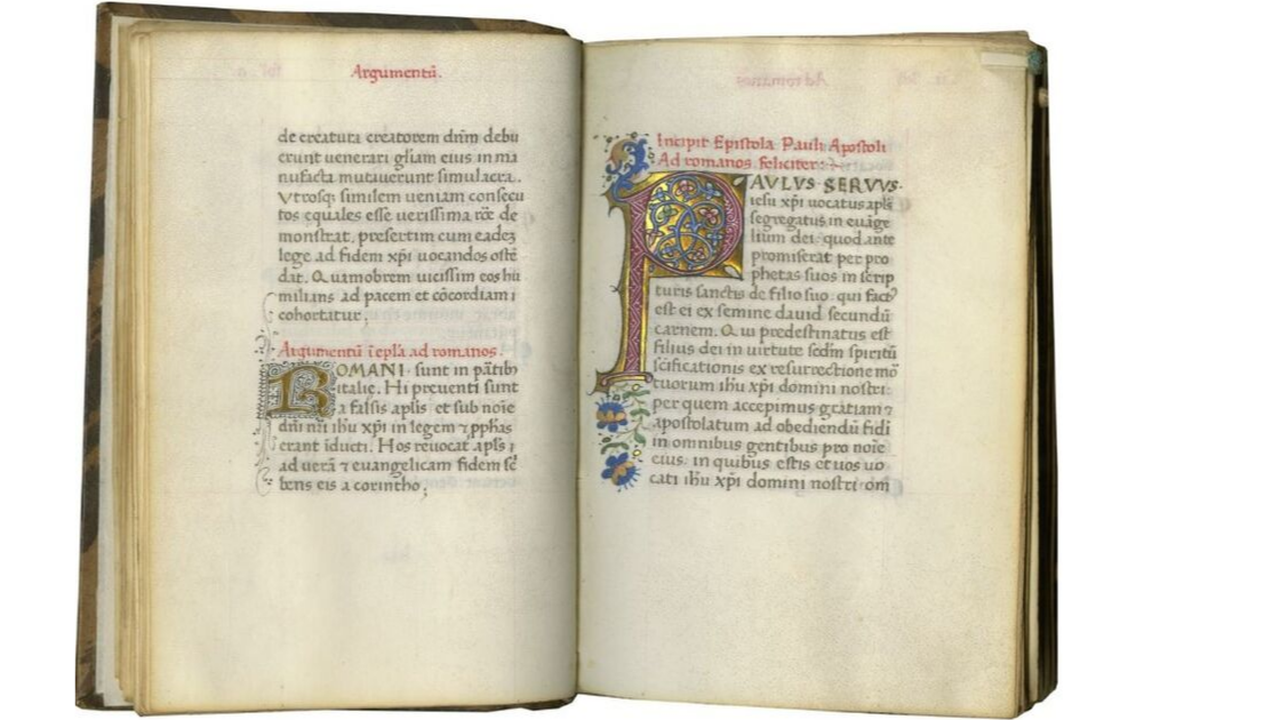 Argumentū.
de creatura creatorem dn̄m debu
erunt uenerari gl̄iam eius in ma
nufacta mutauerunt simulacra.
Vtrosq; similem ueniam consecu
tos equales esse uerissima rōe de
monstrat. presertim cum eadeʒ
lege ad fidem xp̄i uocandos ostē
dat. Quamobrem uicissim eos hu
milians ad pacem et cōcordiam
cohortatur;
Argumentū ī epl̄a ad romanos.
ROMANI sunt in ꝑtibꝰ
italie. Hi preuenti sunt
a falsis apl̄is et sub noīe
dn̄i nr̄i ihu xp̄i in legem ⁊ ꝓphās
erant īducti. Hos reuocat apl̄s
ad uerā ⁊ euangelicam fidem sc̄
bens eis a corintho;
Incipit Epistola Pauli Apostoli
Ad romanos feliciter:
PAVLVS SERVVS.
iesu xp̄i uocatus apl̄s
segregatus in euāge
lium dei. quod ante
promiserat per pro
phetas suos in scrip
turis sanctis de filio suo. qui factꝰ
est ei ex semine dauid secundū
carnem. Qui predestinatus est
filius dei in uirtute sc̄dm spiritū
sc̄ificationis ex resurrectione mō
tuorum ihu xp̄i domini nostri:
per quem accepimus gratiam ⁊
apostolatum ad obediendū fidi
in omnibus gentibus pro noīe
eius. in quibus estis et uos uo
cati ihu xp̄i domini nostri om̄